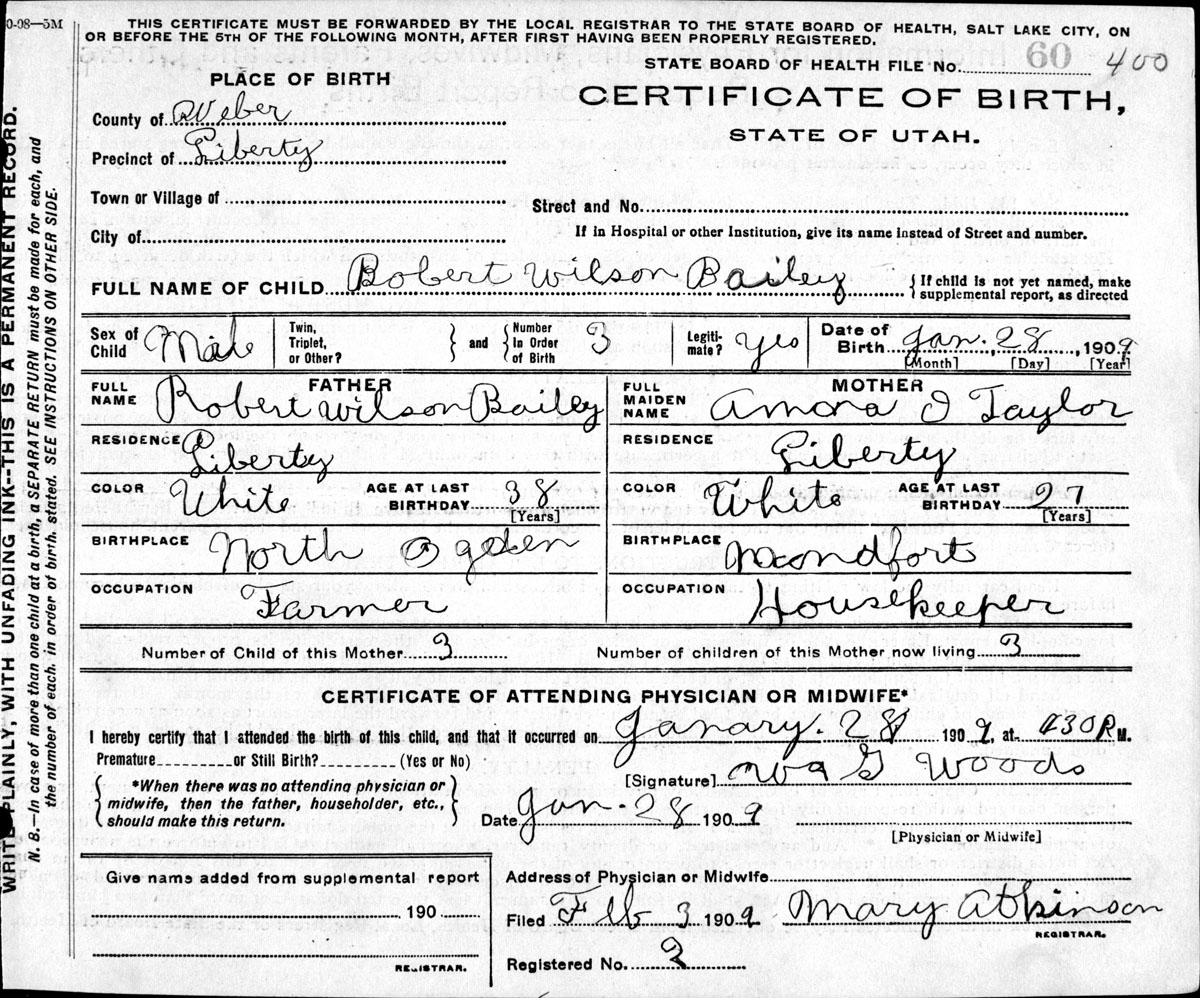 0-98—5M
THIS CERTIFICATE MUST BE FORWARDED BY THE LOCAL REGISTRAR TO THE STATE BOARD OF HEALTH, SALT LAKE CITY, ON
OR BEFORE THE 5TH OF THE FOLLOWING MONTH, AFTER FIRST HAVING BEEN PROPERLY REGISTERED.
STATE BOARD OF HEALTH FILE No. 60 400
PLACE OF BIRTH
CERTIFICATE OF BIRTH,
STATE OF UTAH.
County of Weber
Precinct of Liberty
Town or Village of
Street and No.
City of
If in Hospital or other Institution, give its name instead of Street and number.
FULL NAME OF CHILD Robert Wilson Bailey { If child is not yet named, make supplemental report, as directed
Sex of Child Male Twin, Triplet, or Other? } and { Number In Order of Birth 3 Legiti-mate? yes Date of Birth Jan. 28, 1909 [Month] [Day] [Year]
FATHER
FULL NAME Robert Wilson Bailey
RESIDENCE Liberty
COLOR White AGE AT LAST BIRTHDAY 38 [Years]
BIRTHPLACE North Ogden
OCCUPATION Farmer
MOTHER
FULL MAIDEN NAME Taylor
RESIDENCE Liberty
COLOR White AGE AT LAST BIRTHDAY 27 [Years]
BIRTHPLACE
OCCUPATION Housekeeper
Number of Child of this Mother 3 Number of children of this Mother now living 3
CERTIFICATE OF ATTENDING PHYSICIAN OR MIDWIFE*
I hereby certify that I attended the birth of this child, and that it occurred on Janary. 28 1909, at 430 P. M.
Premature or Still Birth? (Yes or No)
[Signature] G Woods
{ *When there was no attending physician or midwife, then the father, householder, etc., should make this return. }
Date Jan. 28 1909
[Physician or Midwife]
Give name added from supplemental report
190
REGISTRAR.
Address of Physician or Midwife
Filed Feb 3 1909 Mary Atkinson
REGISTRAR.
Registered No. 2
WRITE PLAINLY, WITH UNFADING INK--THIS IS A PERMANENT RECORD.
N. B.—In case of more than one child at a birth, a SEPARATE RETURN must be made for each, and
the number of each, in order of birth, stated. SEE INSTRUCTIONS ON OTHER SIDE.